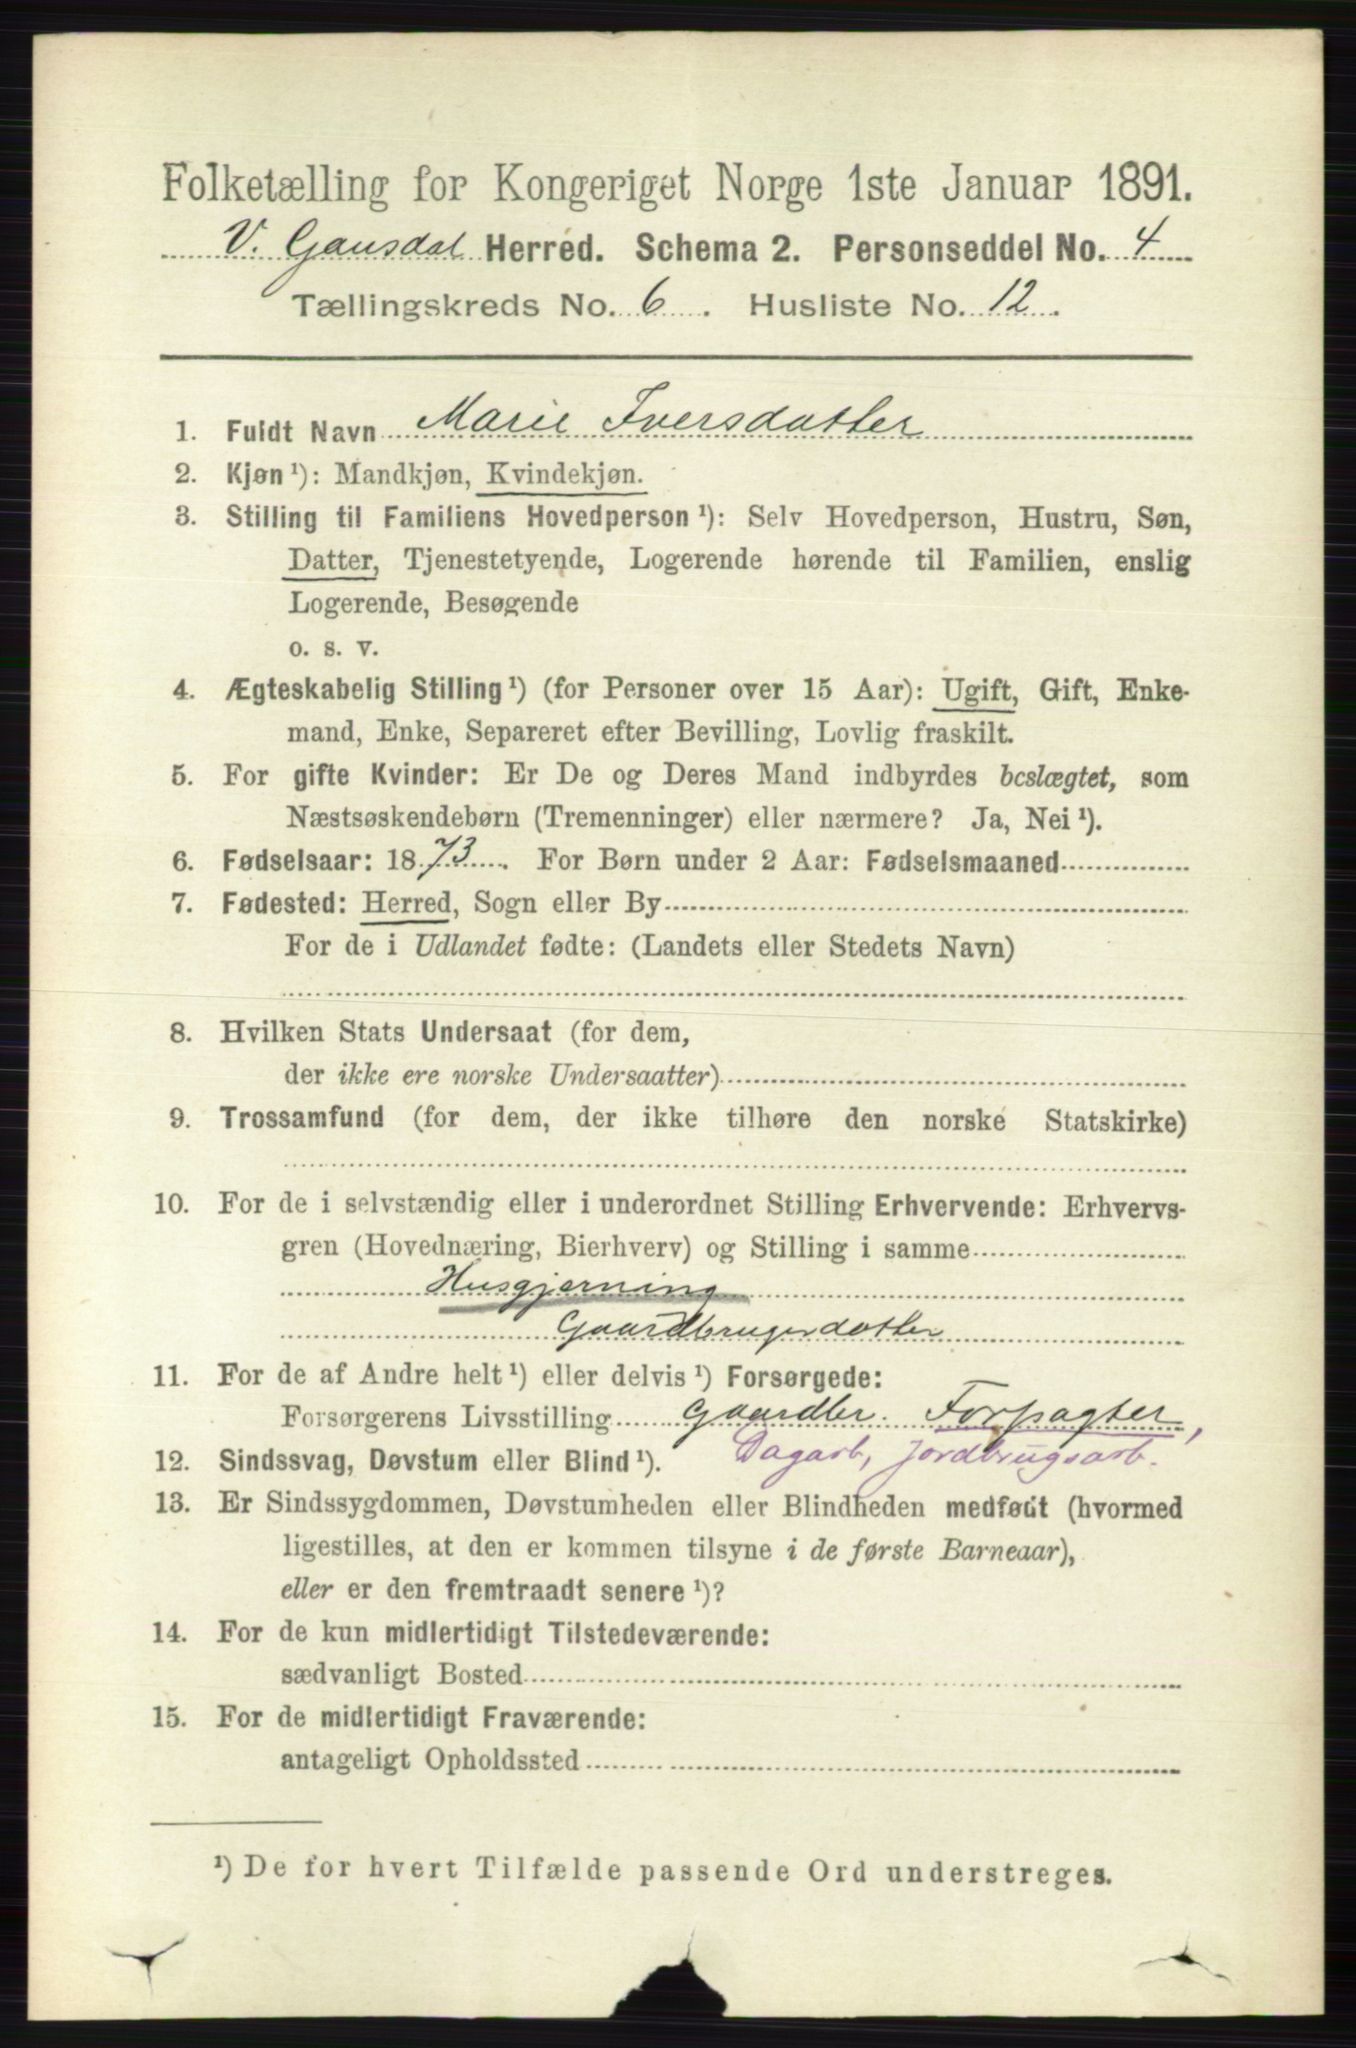 Folketælling for Kongeriget Norge 1ste Januar 1891.
V. Gausdal Herred. Schema 2. Personseddel No. 4
Tællingskreds No. 6. Husliste No. 12.
1. Fuldt Navn Marie Iversdatter
2. Kjøn ¹): Mandkjøn, Kvindekjøn.
3. Stilling til Familiens Hovedperson ¹): Selv Hovedperson, Hustru, Søn,
Datter, Tjenestetyende, Logerende hørende til Familien, enslig
Logerende, Besøgende
o. s. v.
4. Ægteskabelig Stilling ¹) (for Personer over 15 Aar): Ugift, Gift, Enke-
mand, Enke, Separeret efter Bevilling, Lovlig fraskilt.
5. For gifte Kvinder: Er De og Deres Mand indbyrdes beslægtet, som
Næstsøskendebørn (Tremenninger) eller nærmere? Ja, Nei ¹).
6. Fødselsaar: 1873. For Børn under 2 Aar: Fødselsmaaned
7. Fødested: Herred, Sogn eller By
For de i Udlandet fødte: (Landets eller Stedets Navn)
8. Hvilken Stats Undersaat (for dem,
der ikke ere norske Undersaatter)
9. Trossamfund (for dem, der ikke tilhøre den norske Statskirke)
10. For de i selvstændig eller i underordnet Stilling Erhvervende: Erhvervs-
gren (Hovednæring, Bierhverv) og Stilling i samme
Husgjerning
Gaardbrugerdatter
11. For de af Andre helt ¹) eller delvis ¹) Forsørgede:
Forsørgerens Livsstilling Gaardbr. Forpagter,
12. Sindssvag, Døvstum eller Blind ¹). Dagarb, Jordbrugsarb.
13. Er Sindssygdommen, Døvstumheden eller Blindheden medfødt (hvormed
ligestilles, at den er kommen tilsyne i de første Barneaar),
eller er den fremtraadt senere ¹)?
14. For de kun midlertidigt Tilstedeværende:
sædvanligt Bosted
15. For de midlertidigt Fraværende:
antageligt Opholdssted
¹) De for hvert Tilfælde passende Ord understreges.